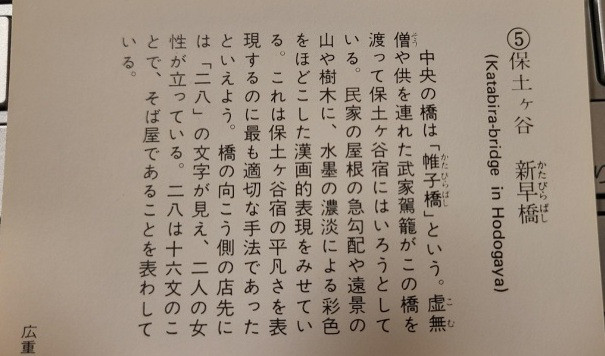 ⑤保土ヶ谷 新早橋
かたびらばし
(Katabira-bridge in Hodogaya)
中央の橋は「帷子橋」という。虚無
かたびらばし
こむ
僧や供を連れた武家駕籠がこの橋を
そう
渡って保土ヶ谷宿にはいろうとして
いる。民家の屋根の急勾配や遠景の
山や樹木に、水墨の濃淡による彩色
をほどこした漢画的表現をみせてい
る。これは保土ヶ谷宿の平凡さを表
現するのに最も適切な手法であった
といえよう。橋の向こう側の店先に
は「二八」の文字が見え、二人の女
性が立っている。二八は十六文のこ
とで、そば屋であることを表わして
いる。
広重